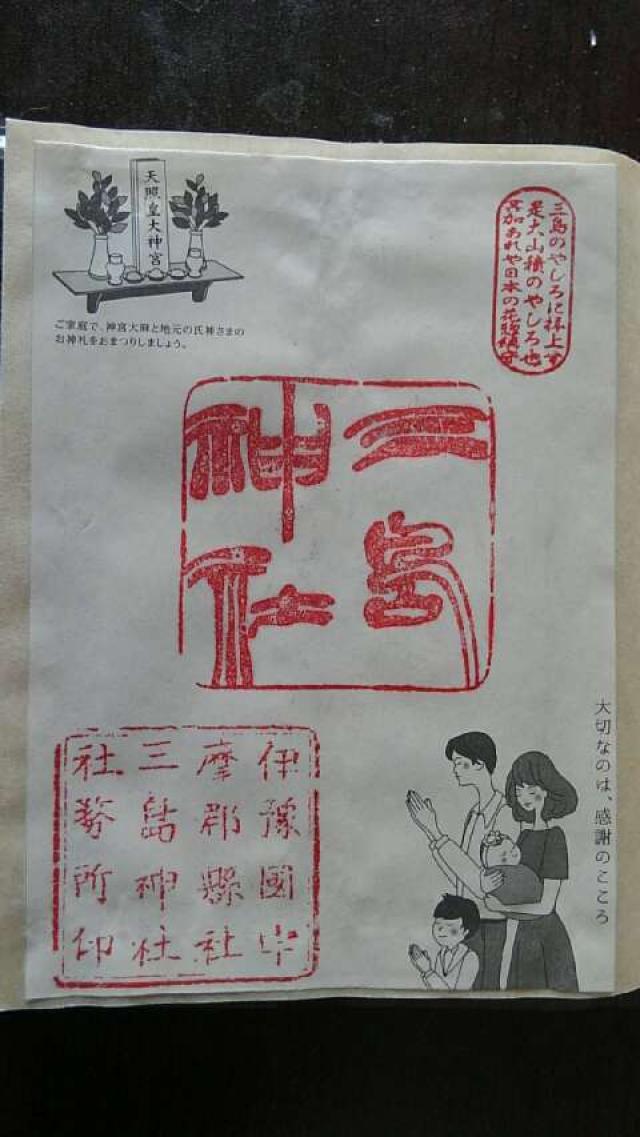 天照皇大神宮
ご家庭で、神宮大麻と地元の氏神さまの
お神札をおまつりしましょう。
三島のやしろに
是大山積のやしろ也
冥加あれや日本の花惣鎮守
三島
神社
伊豫國宇
摩郡縣社
三島神社
社務所印
大切なのは、感謝のこころ